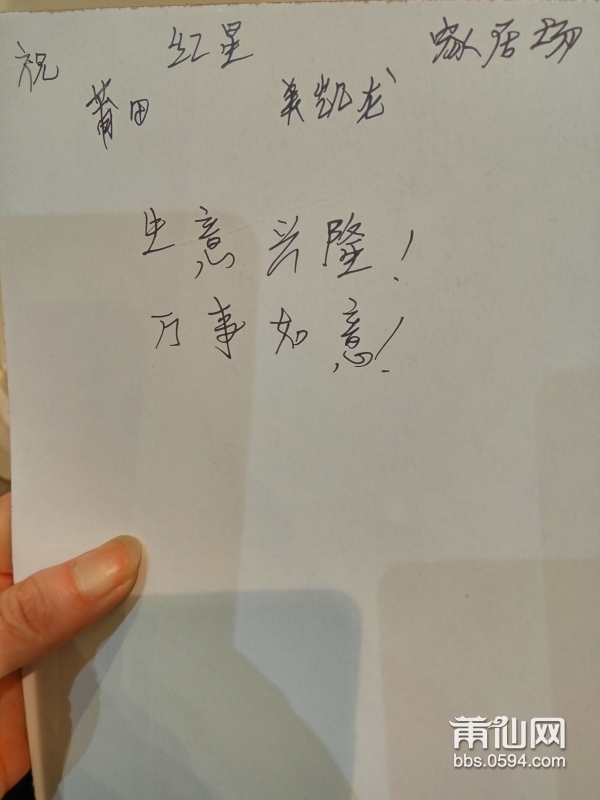 祝 红星 家居场
莆田 美凯龙
生意兴隆!
万事如意!
莆仙网
bbs.0594.com